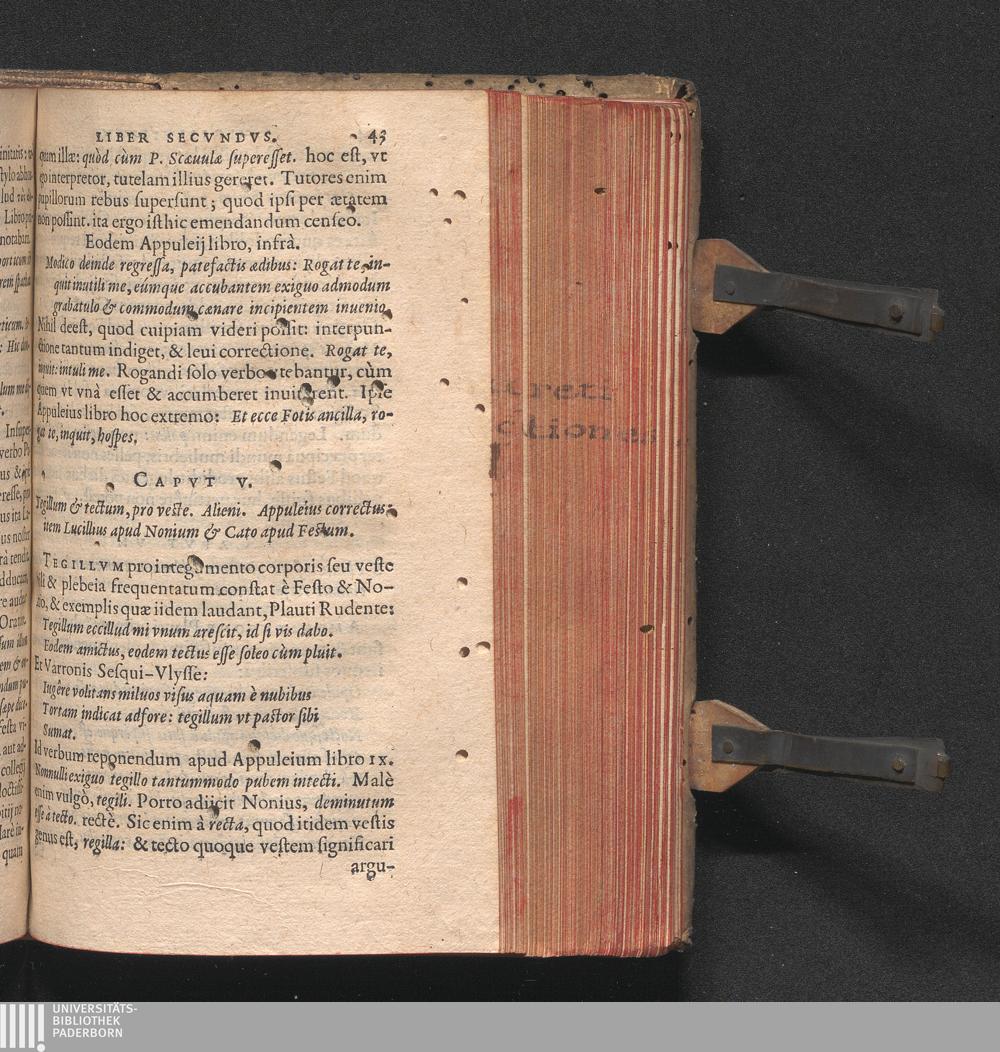 LIBER SECVNDVS. 43
quam illæ: quòd cùm P. Scæuulæ superesset. hoc est, vt
ego interpretor, tutelam illius gereret. Tutores enim
pupillorum rebus supersunt; quod ipsi per ætatem
non possint. ita ergo isthic emendandum censeo.
Eodem Appuleij libro, infrà.
Modico deinde regressa, patefactis ædibus: Rogat te, in-
quit inutili me, eúmque accubantem exiguo admodum
grabatulo & commodum cænare incipientem inuenio.
Nihil deest, quod cuipiam videri possit: interpun-
ctione tantum indiget, & leui correctione. Rogat te,
inquit: intuli me. Rogandi solo verbo vtebantur, cùm
quem vt vnà esset & accumberet inuitarent. Ipse
Appuleius libro hoc extremo: Et ecce Fotis ancilla, ro-
gat te, inquit, hospes.
CAPVT V.
Tegillum & tectum, pro veste. Alieni. Appuleius correctus:
item Lucillius apud Nonium & Cato apud Festum.
TEGILLVM pro integumento corporis seu veste
vili & plebeia frequentatum constat è Festo & No-
nio, & exemplis quæ iidem laudant, Plauti Rudente:
Tegillum eccillud mi vnum arescit, id si vis dabo.
Eodem amictus, eodem tectus esse soleo cùm pluit.
Et Varronis Sesqui-Vlysse:
Iugêre volitans miluos visus aquam è nubibus
Tortam indicat adfore: tegillum vt pastor sibi
Sumat.
Id verbum reponendum apud Appuleium libro IX.
Nonnulli exiguo tegillo tantummodo pubem intecti. Malè
enim vulgò, tegili. Porro adiicit Nonius, deminutum
esse à tecto. rectè. Sic enim à recta, quod itidem vestis
genus est, regilla: & tecto quoque vestem significari
argu-
UNIVERSITÄTS-
BIBLIOTHEK
PADERBORN